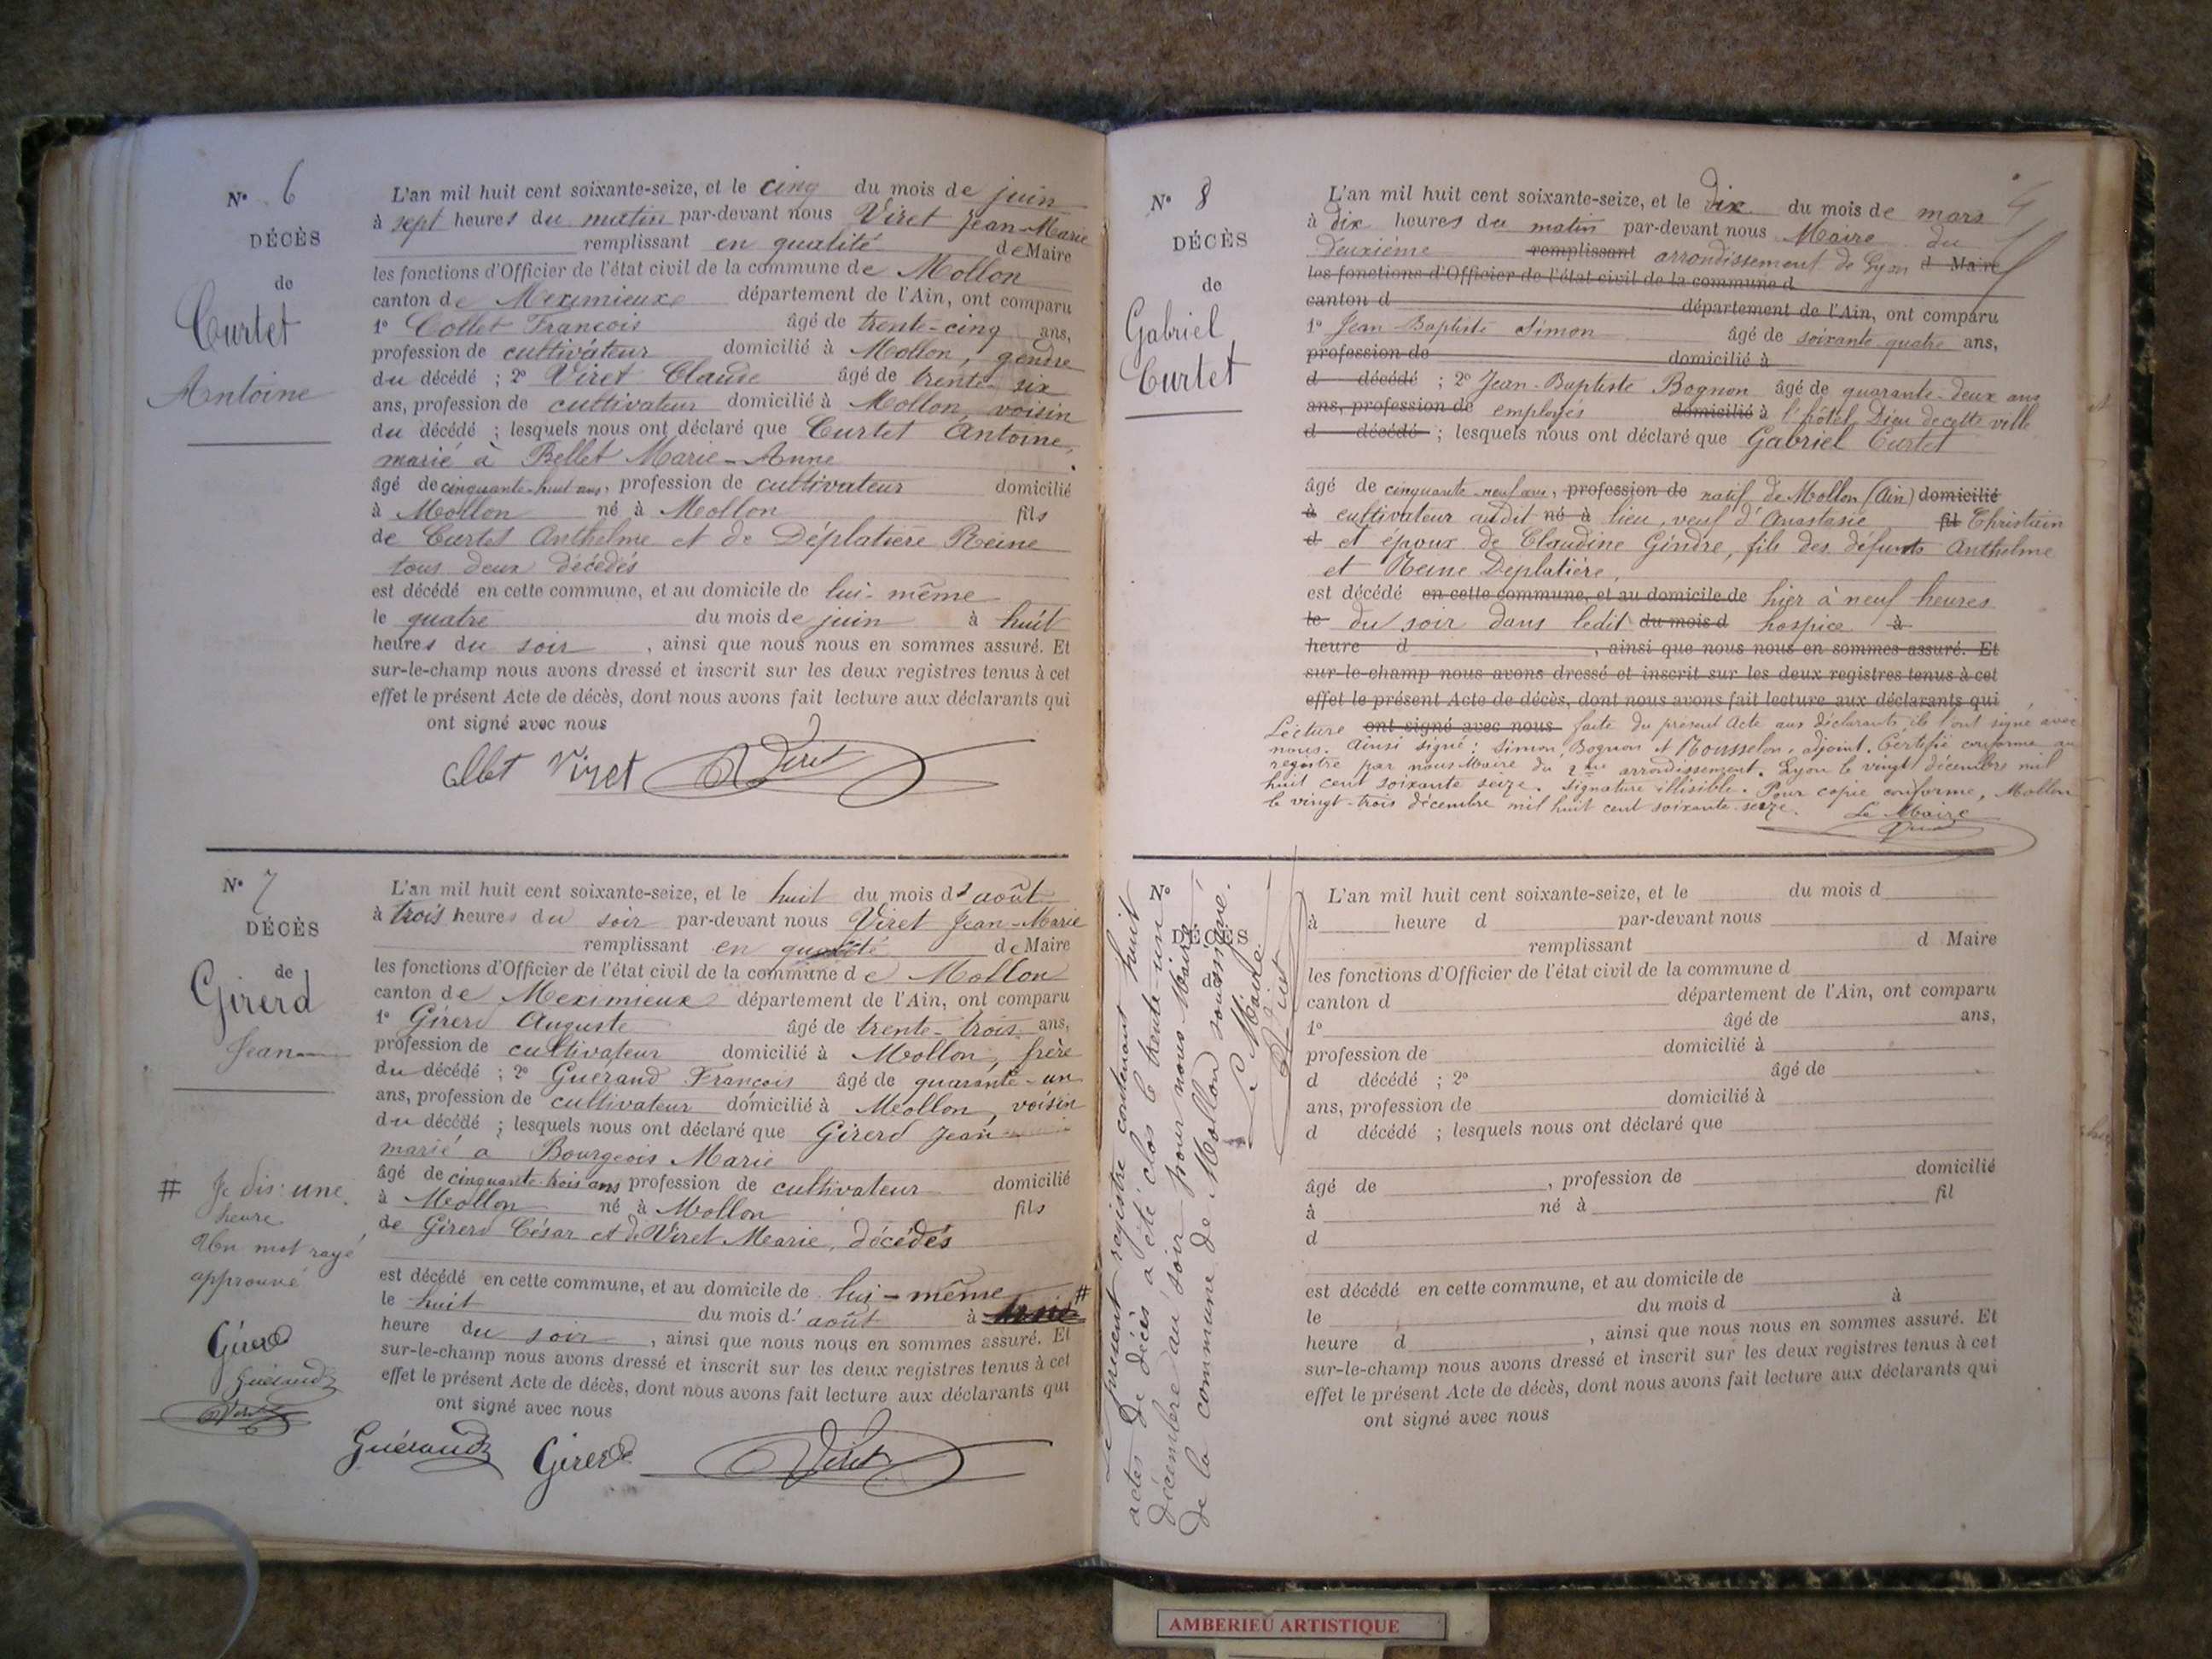 N° 6
DÉCÈS
de
Curtet
Antoine
L'an mil huit cent soixante-seize, et le cinq du mois de juin
à sept heures du matin par-devant nous Viret Jean-Marie
remplissant en qualité de Maire
les fonctions d'Officier de l'état civil de la commune de Mollon
canton de Meximieux département de l'Ain, ont comparu
1° Collet François âgé de trente-cinq ans,
profession de cultivateur domicilié à Mollon, gendre
du décédé ; 2° Viret Claude âgé de trente-six
ans, profession de cultivateur domicilié à Mollon, voisin
du décédé ; lesquels nous ont déclaré que Curtet Antoine,
marié à Bellet Marie-Anne
âgé de cinquante-huit ans, profession de cultivateur domicilié
à Mollon né à Mollon fils
de Curtet Anthelme et de Déplatière Reine
tous deux décédés
est décédé en cette commune, et au domicile de lui-même
le quatre du mois de juin à huit
heures du soir , ainsi que nous nous en sommes assuré. Et
sur-le-champ nous avons dressé et inscrit sur les deux registres tenus à cet
effet le présent Acte de décès, dont nous avons fait lecture aux déclarants qui
ont signé avec nous
Collet Viret Viret
N° 7
DÉCÈS
de
Girerd
Jean
L'an mil huit cent soixante-seize, et le huit du mois d'août
à trois heures du soir par-devant nous Viret Jean-Marie
remplissant en qualité de Maire
les fonctions d'Officier de l'état civil de la commune de Mollon
canton de Meximieux département de l'Ain, ont comparu
1° Girerd Auguste âgé de trente-trois ans,
profession de cultivateur domicilié à Mollon, frère
du décédé ; 2° Guérand François âgé de quarante-un
ans, profession de cultivateur domicilié à Mollon, voisin
du décédé ; lesquels nous ont déclaré que Girerd Jean
marié à Bourgeois Marie
âgé de cinquante-trois ans profession de cultivateur domicilié
à Mollon né à Mollon fils
de Girerd César et de Viret Marie, décédés
est décédé en cette commune, et au domicile de lui-même
le huit du mois d'août à #
heure du soir , ainsi que nous nous en sommes assuré. Et
sur-le-champ nous avons dressé et inscrit sur les deux registres tenus à cet
effet le présent Acte de décès, dont nous avons fait lecture aux déclarants qui
ont signé avec nous
# Je dis: une
heure
Un mot rayé
approuvé
Girerd
Guérand
Viret
Guérand Girerd Viret
N° 8
DÉCÈS
de
Gabriel
Curtet
L'an mil huit cent soixante-seize, et le dix du mois de mars
à dix heures du matin par-devant nous Maire du
deuxième remplissant arrondissement de Lyon d Maire
les fonctions d'Officier de l'état civil de la commune d
canton d département de l'Ain, ont comparu
1° Jean Baptiste Simon âgé de soixante quatre ans,
profession de domicilié à
d décédé ; 2° Jean-Baptiste Bognon âgé de quarante-deux ans
ans, profession de employés domicilié à l'hôtel Dieu de cette ville
d décédé ; lesquels nous ont déclaré que Gabriel Curtet
âgé de cinquante neuf ans, profession de natif de Mollon (Ain) domicilié
à cultivateur audit né à lieu, veuf d'Anastasie fil Christain
d et époux de Claudine Gindre, fils des défunts Anthelme
et Reine Deplatière,
est décédé en cette commune, et au domicile de hier à neuf heures
le du soir dans ledit du mois d hospice à
heure d , ainsi que nous nous en sommes assuré. Et
sur-le-champ nous avons dressé et inscrit sur les deux registres tenus à cet
effet le présent Acte de décès, dont nous avons fait lecture aux déclarants qui
Lecture ont signé avec nous faite du présent Acte aux déclarants ils l'ont signé avec
nous. Ainsi signé: Simon, Bognon et Rousselon, adjoint. Certifié conforme au
registre par nous Maire du 2me arrondissement. Lyon le vingt décembre mil
huit cent soixante seize. Signature illisible. Pour copie conforme, Mollon
le vingt-trois décembre mil huit cent soixante-seize. Le Maire
Viret
Le présent registre contenant huit
actes de décès a été clos le trente-un
décembre au soir par nous Maire
de la commune de Mollon soussigné.
Le Maire
Viret
N°
DÉCÈS
de
L'an mil huit cent soixante-seize, et le du mois d
à heure d par-devant nous
remplissant d Maire
les fonctions d'Officier de l'état civil de la commune d
canton d département de l'Ain, ont comparu
1° âgé de ans,
profession de domicilié à
d décédé ; 2° âgé de
ans, profession de domicilié à
d décédé ; lesquels nous ont déclaré que
âgé de , profession de domicilié
à né à fil
d
est décédé en cette commune, et au domicile de
le du mois d à
heure d , ainsi que nous nous en sommes assuré. Et
sur-le-champ nous avons dressé et inscrit sur les deux registres tenus à cet
effet le présent Acte de décès, dont nous avons fait lecture aux déclarants qui
ont signé avec nous
AMBERIEU ARTISTIQUE